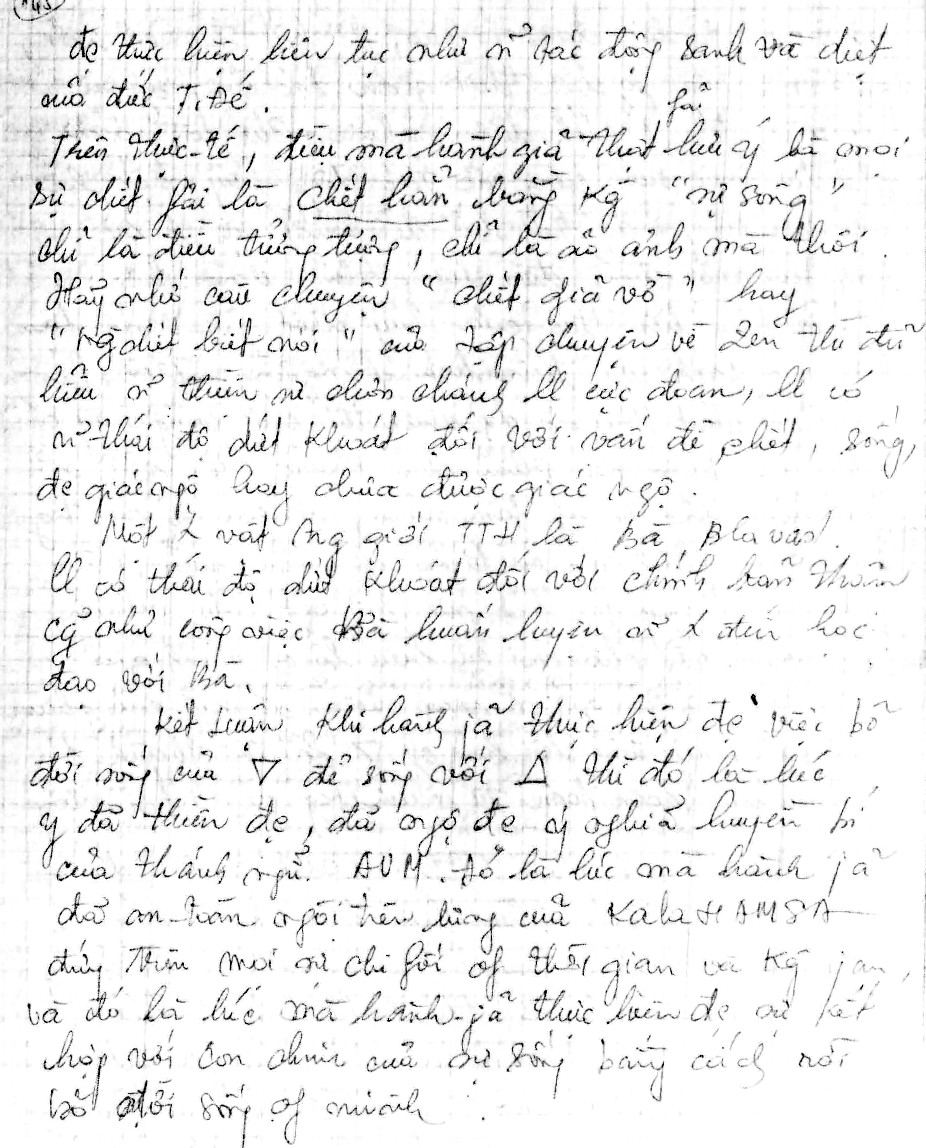 45
đẹ thực hiện liên tục như n² tác động sanh và diệt
của đức T.Đế.
fải
Trên thực-tế, điều mà hành giả thật lưu ý là mọi
sự chết fải là chết hẳn bằng kg "sự sống"
chỉ là điều tưởng tượng, chỉ là ảo ảnh mà thôi.
Hãy nhớ câu chuyện "chết giả vờ" hay
"ng chết biết nói" của tập chuyện về Zen thì đủ
hiểu n² thiền sư chơn chánh ll cực đoan, ll có
n² thái độ dứt khoát đối với vấn đề chết, sống,
đẹ giác ngộ hay chưa được giác ngộ.
Một vật ng giới TTH là Bà Blavas.
ll có thái độ dứt khoát đối với chính bản thân
cg như công việc Bà huấn luyện n² đến học
đạo với Bà.
Kết Luận khi hành jả thực hiện đẹ việc bỏ
đời sống của ▽ để sống với △ thì đó là lúc
y đã thiền đẹ, đã ngộ đẹ ý nghĩa huyền bí
của thánh ngữ AUM. Đó là lúc mà hành jả
đã an-toàn ngồi trên lưng của KalaHAMSA
đứng trên mọi sự chi fối of thời gian và kg jan,
và đó là lúc mà hành-jả thực hiện đẹ sự kết
hợp với con chim của sự sống bằng cách rời
bỏ đời sống of mình.